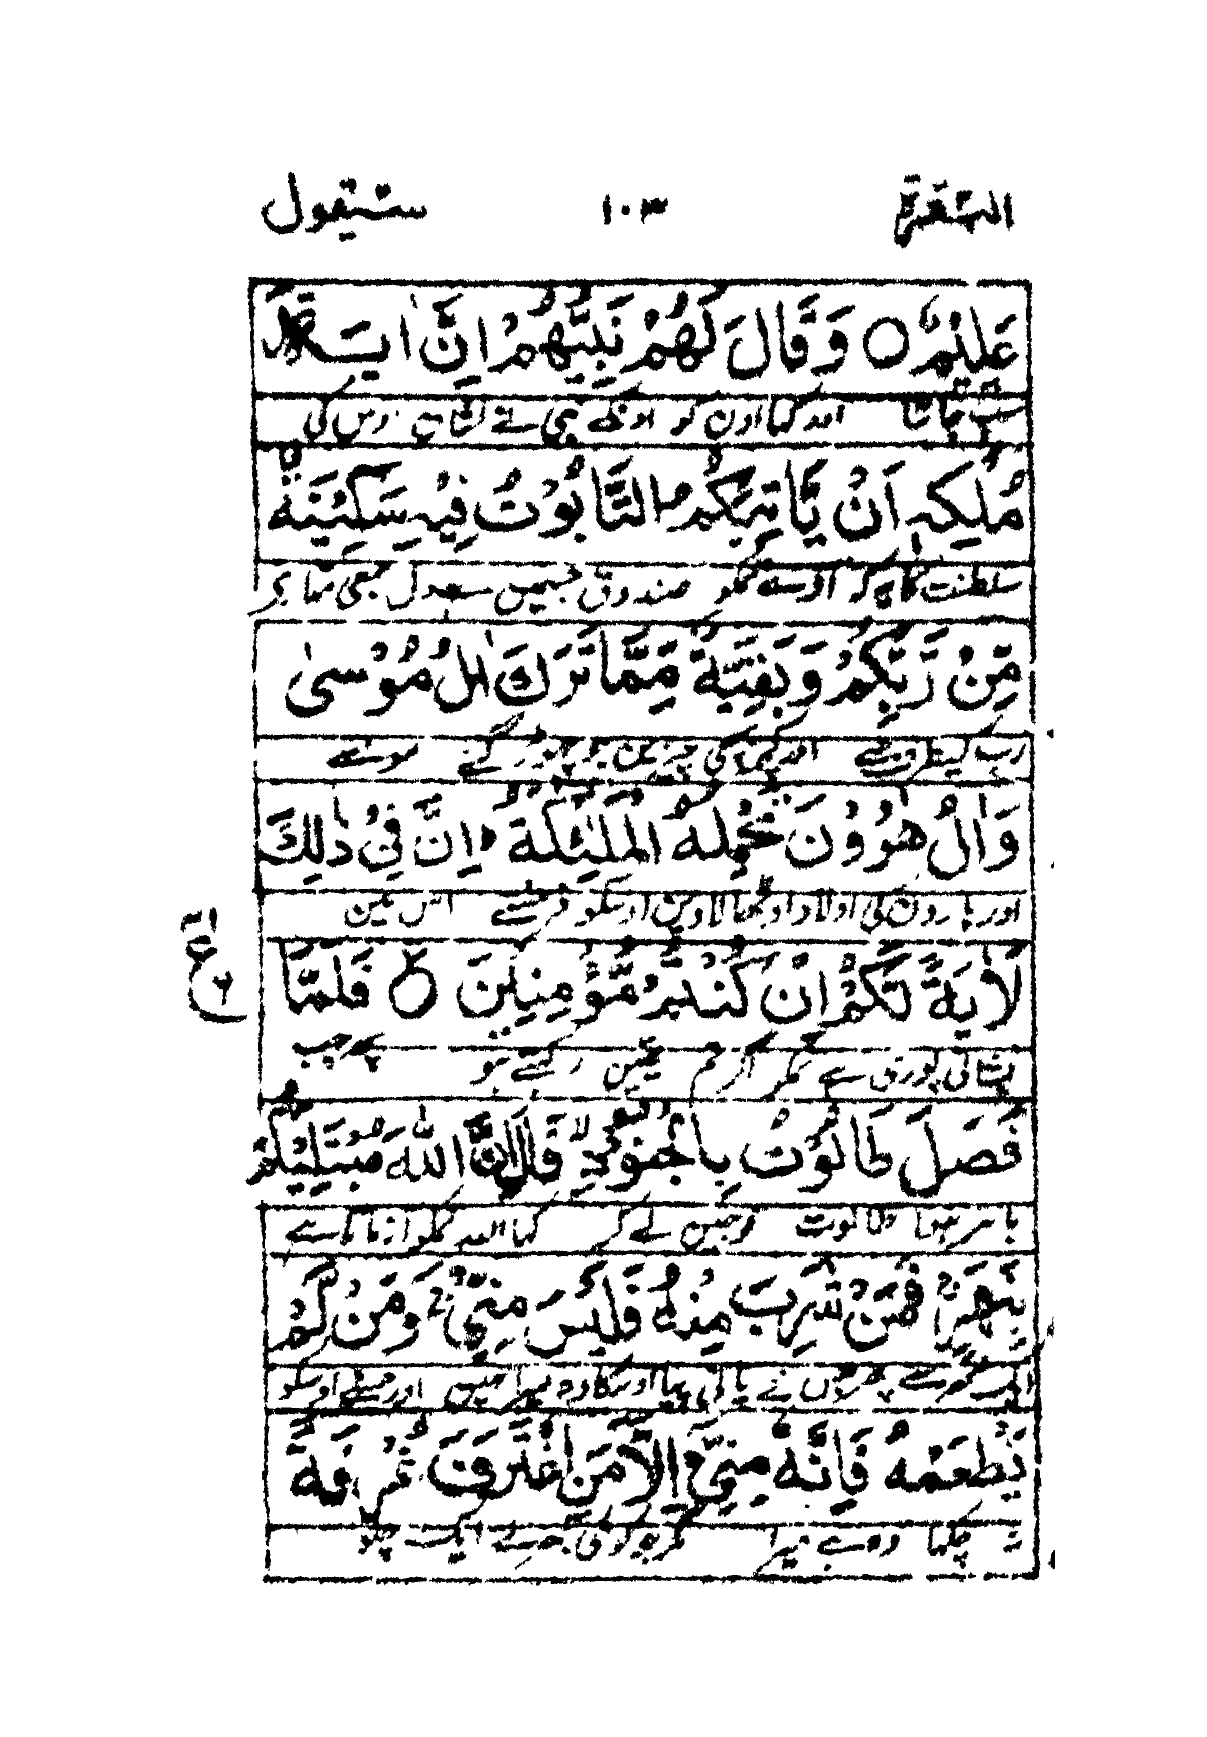 البقرة ١٠٣ سیقول
عَلِیْمٌ ○ وَقَالَ لَهُمْ نَبِیُّهُمْ اِنَّ اٰیَةَ
سب جانتا اور کہا اون کو اونکے نبی نے نشان اوس کی
مُلْكِهٖ اَنْ یَّاْتِیَكُمُ التَّابُوْتُ فِیْهِ سَكِیْنَةٌ
سلطنت کا یہ کہ آوے تمکو صندوق جسمیں دل جمعی
مِّنْ رَّبِّكُمْ وَبَقِیَّةٌ مِّمَّا تَرَكَ اٰلُ مُوْسٰی
رب کیطرف سے اور کچھ چیزیں جو چھوڑ گئے موسے
وَاٰلُ هٰرُوْنَ تَحْمِلُهُ الْمَلٰٓئِكَةُ ؕ اِنَّ فِیْ ذٰلِكَ
اور ہارون کی اولاد اوٹھا لاویں اوسکو فرشتے اس مین
لَاٰیَةً لَّكُمْ اِنْ كُنْتُمْ مُّؤْمِنِیْنَ ○ فَلَمَّا
نشانی پوری ہے تمکو اگر تم یقین رکھتے ہو پھر جب
فَصَلَ طَالُوْتُ بِالْجُنُوْدِ ۙ قَالَ اِنَّ اللّٰهَ مُبْتَلِیْكُمْ
باہر ہوا طالوت فوجیں لے کر کہا اللہ تمکو آزماتا ہے
بِنَهَرٍ ۚ فَمَنْ شَرِبَ مِنْهُ فَلَیْسَ مِنِّیْ ۚ وَمَنْ لَّمْ
ایک نہر سے پھر جس نے پانی پیا اوسکا وہ میرا نہیں اور جسنے اوسکو
یَطْعَمْهُ فَاِنَّهٗ مِنِّیْٓ اِلَّا مَنِ اغْتَرَفَ غُرْفَةً
نہ چکھا وہ ہے میرا مگر جو کوئی بھرے ایک چلو